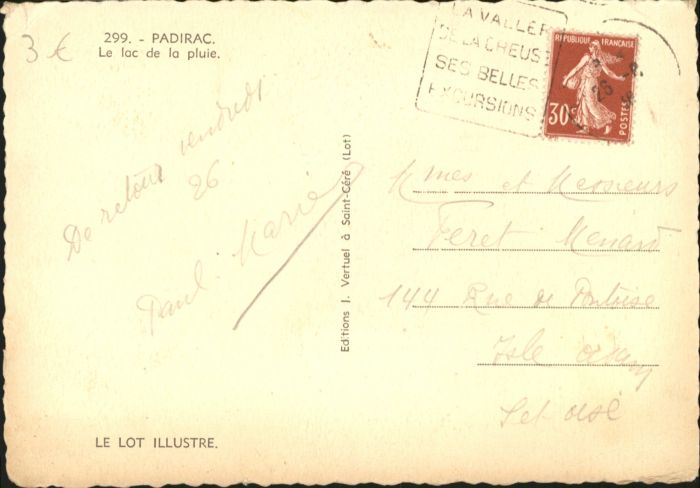 3 €
299. - PADIRAC.
Le lac de la pluie.
LA VALLEE
DE LA CREUSE
SES BELLES
EXCURSIONS
REPUBLIQUE FRANÇAISE
30c
POSTES
26
De retour vendredi
26
Paul Marie
Editions J. Vertuel à Saint-Céré (Lot)
Mmes et Messieurs
Feret Menard
144 Rue de Pontoise
Isle Adam
Set oise
LE LOT ILLUSTRE.